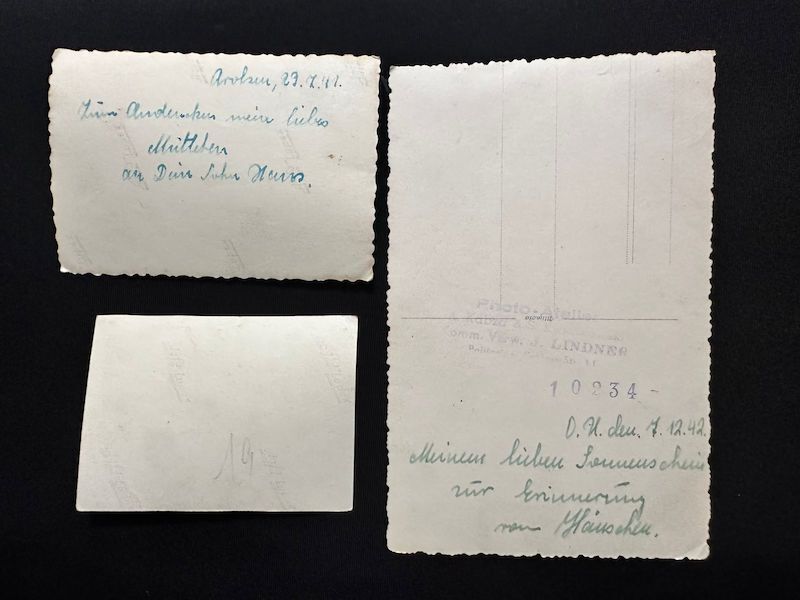 Arolsen, 23.7.41.
Zum Andenken mein liebes
Muttchen
an Dein Sohn Hans.
19
Photo-Atelier
Komm. Verw. J. LINDNER
10234-
O.U. den. 7.12.42.
Meinem lieben Sonnenschein
zur Erinnerung
von Hänschen.